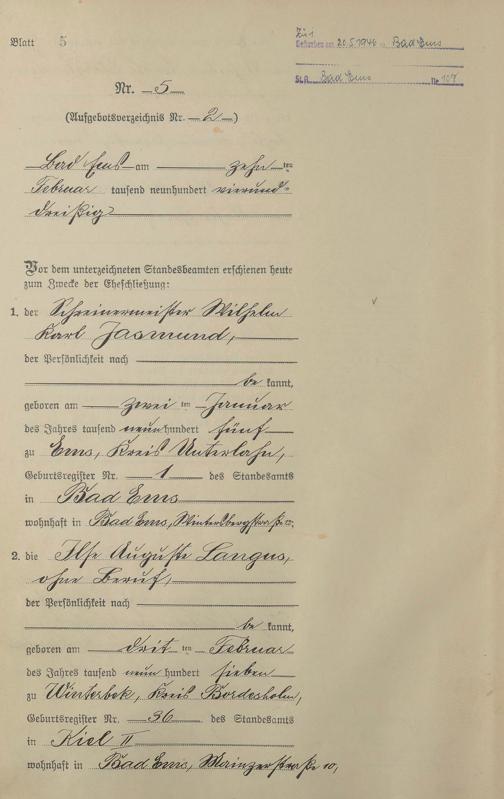 Blatt 5
Zu 1
Gestorben am 20.5.1946 in Bad Ems
St.A. Bad Ems Nr 107
Nr. 5
(Aufgebotsverzeichnis Nr. 2)
Bad Ems am zehnten
Februar tausend neunhundert vierund-
dreißig
Vor dem unterzeichneten Standesbeamten erschienen heute
zum Zwecke der Eheschließung:
1. der Schreinermeister Wilhelm
Karl Jasmund,
der Persönlichkeit nach
be kannt,
geboren am zwei ten Januar
des Jahres tausend neunhundert fünf
zu Ems, Kreis Unterlahn,
Geburtsregister Nr. 1 des Standesamts
in Bad Ems
wohnhaft in Bad Ems, Wintersbergstraße
2. die Ilse Auguste Langus,
ohne Beruf,
der Persönlichkeit nach
be kannt,
geboren am drit ten Februar
des Jahres tausend neun hundert sieben
zu Winterbek, Kreis Bordesholm,
Geburtsregister Nr. 36 des Standesamts
in Kiel II
wohnhaft in Bad Ems, Mainzerstraße 10,